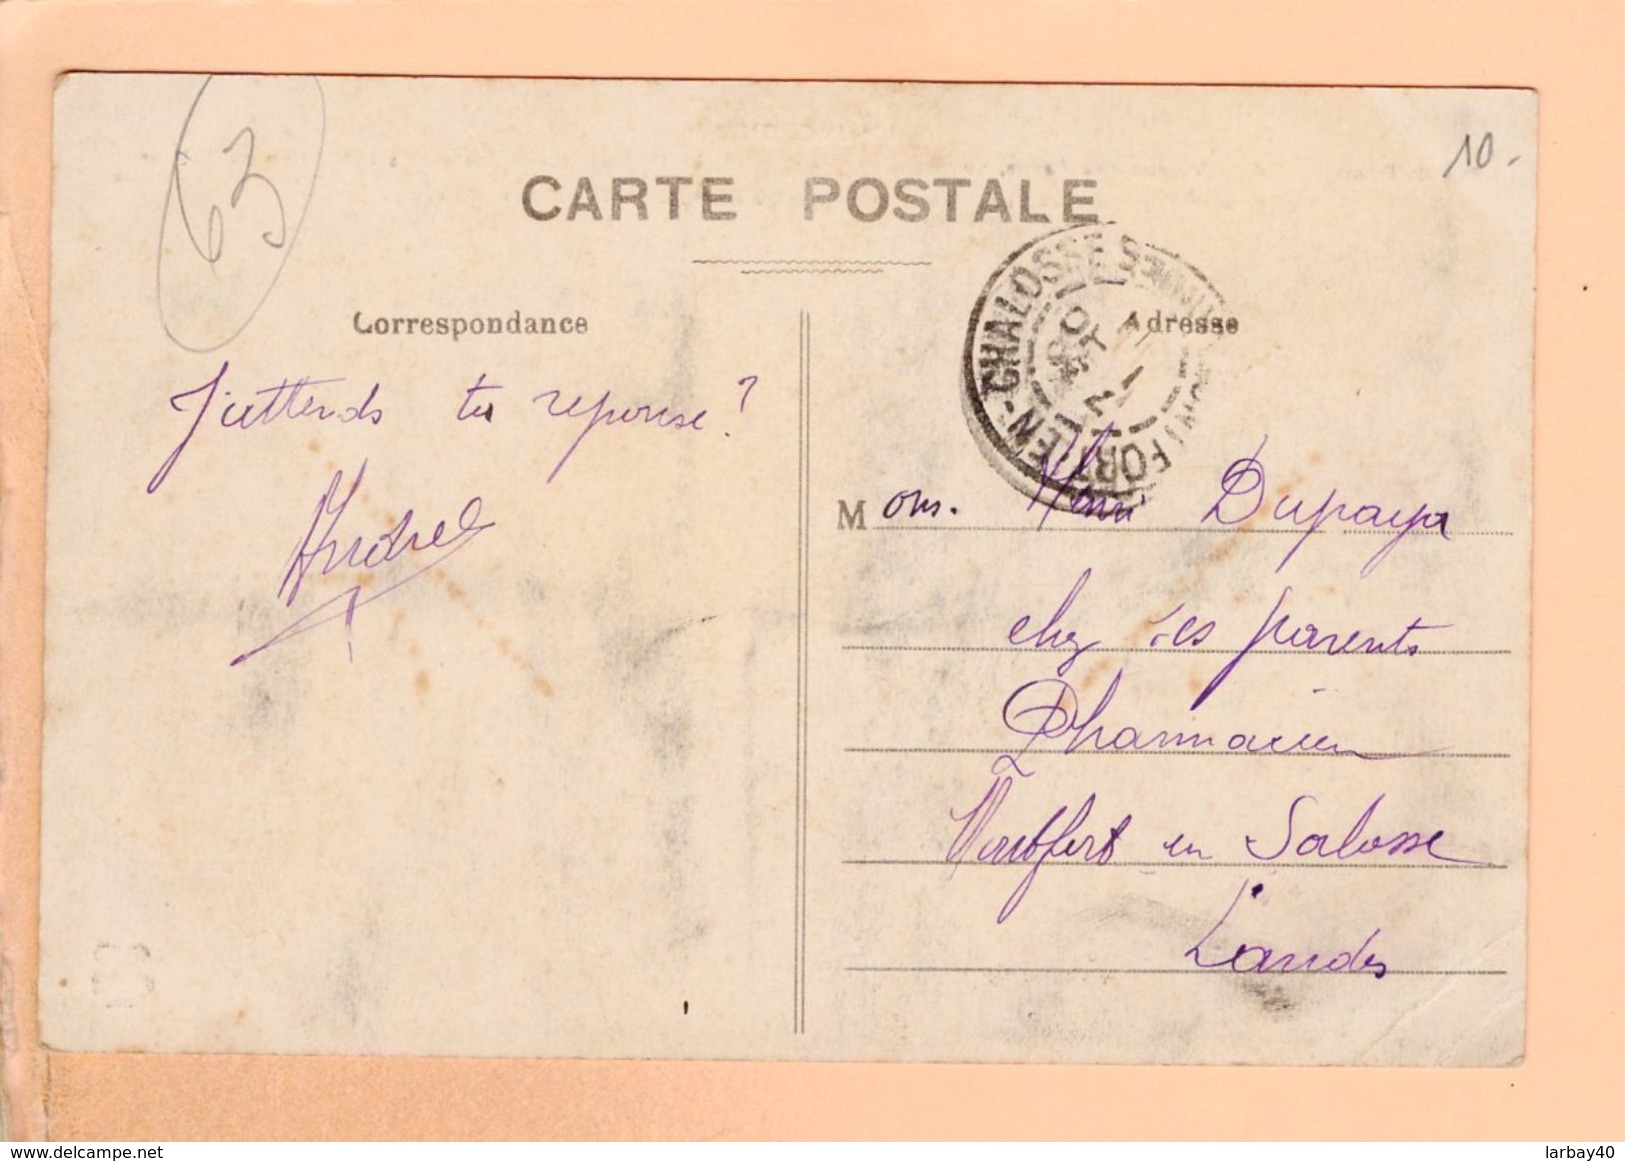 63
10.
CARTE POSTALE
Correspondance
Adresse
MONTFORT-EN-CHALOSSE
J'attends ta reponse?
André
Mons. Henri Dupaya
chez ses parents
Pharmacien
Montfort en Salosse
Landes
delcampe.net
larbay40